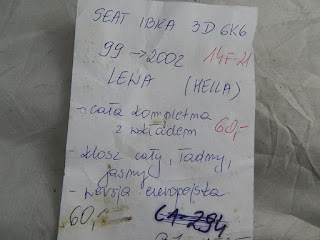 SEAT IBIZA 3D 6K6
99 → 2002 14F-21
LEWA (HELLA)
- cała kompletna
z wkładem 60,-
- klosz cały, ładny,
jasny
- wersja europejska
60,- C1-294